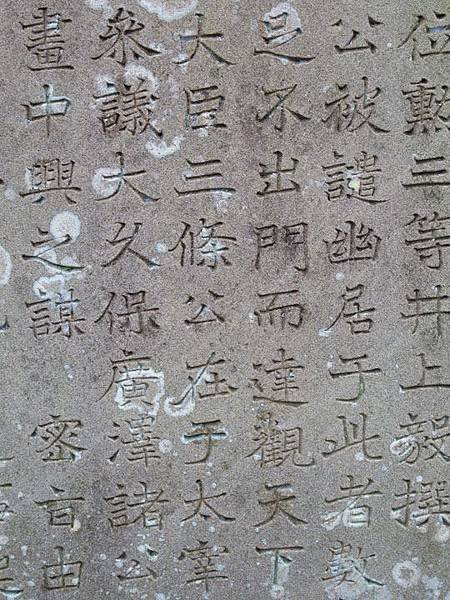 位勳三等井上毅撰
公被譴幽居于此者數
足不出門而達觀天下
大臣三條公在于太宰
參議大久保廣澤諸公
畫中興之謀 密旨由